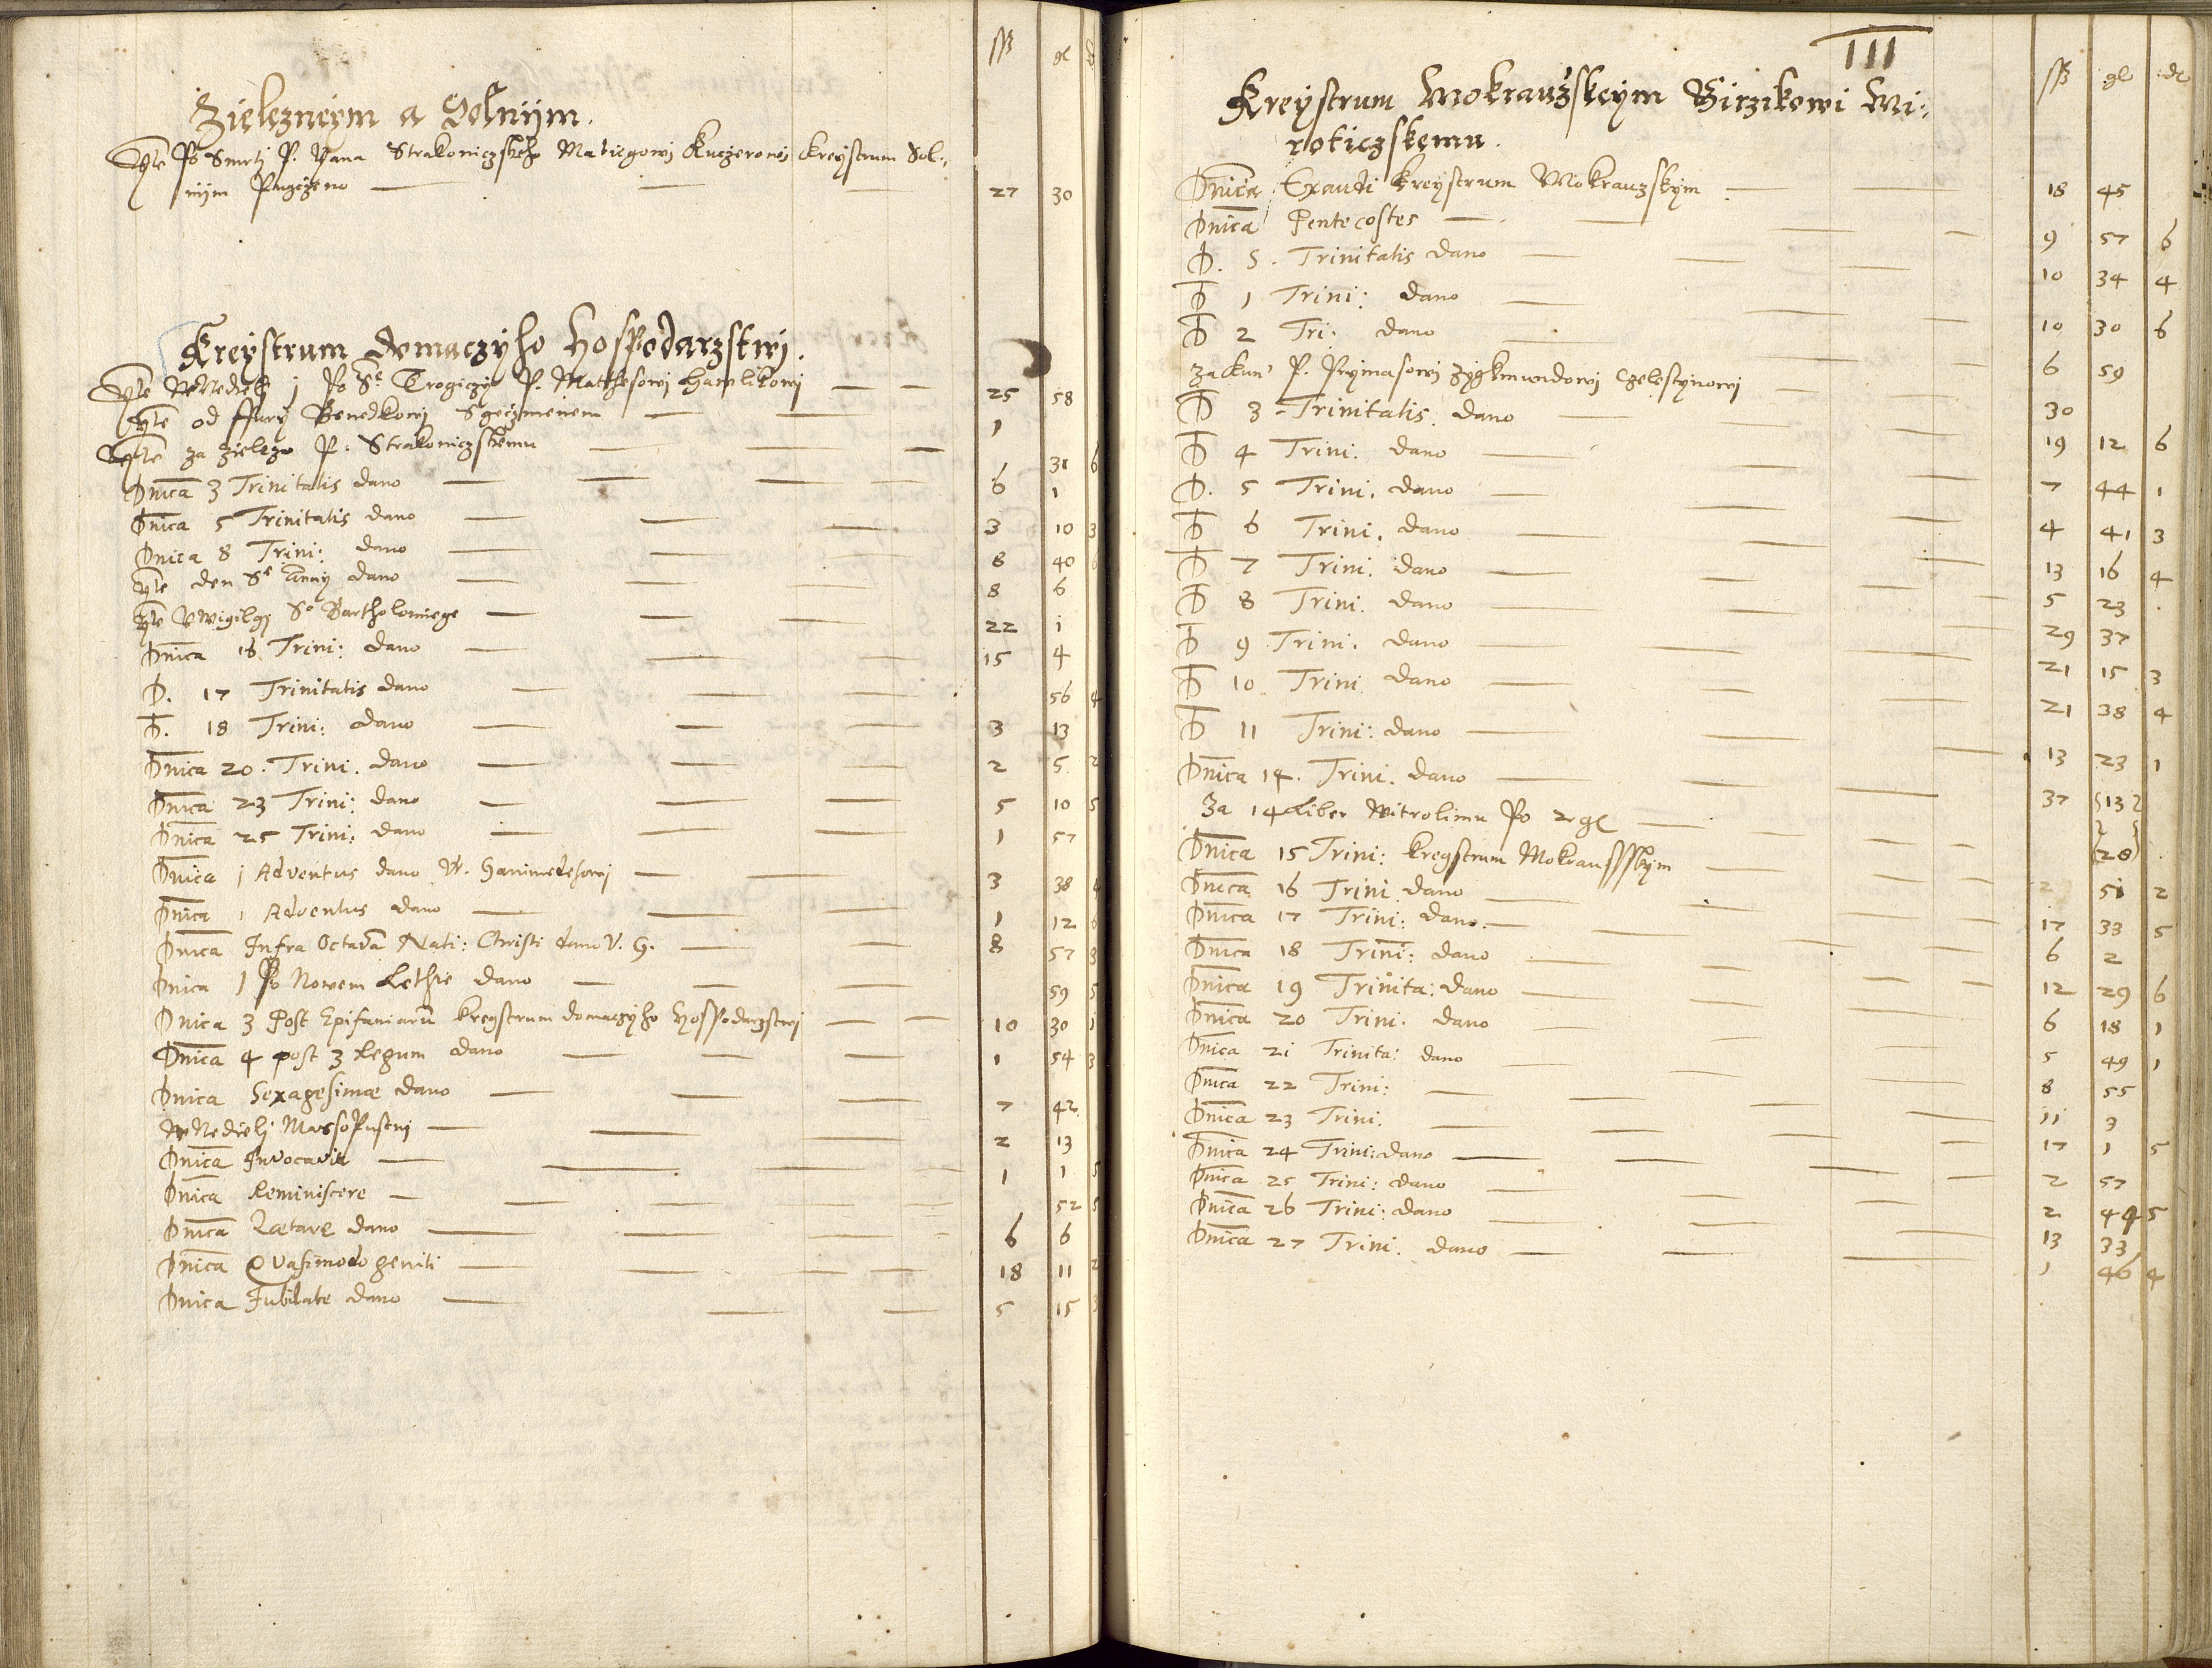 ss gl d
Zielezneym a Solnijm.
Ite Po Smrtj P. Jana Strakoniczskeho Matiegowj Kuczerowj Kreystrum Sol:
nijm Pugczeno 27 30
Kreystrum domaczyho Hospodarzstwj.
Ite W Nedielj j Po Se Trogiczy P. Matthesowj Hawlikowj 25 58
Ite od ffury Benedkowj Sgeczmenem 1
Ite za Zielezo P. Strakoniczskemu 31 6
Dnica 3 Trinitatis dano 6 1
Dnica 5 Trinitatis dano 3 10 3
Dnica 8 Trini: dano 8 40 6
Ite den Se Anny dano 8 6
Ite Vwigilgj So Bartholomiege 22 i
Dnica 16 Trini: dano 15 4
D. 17 Trinitatis dano 56 4
D. 18 Trini: dano 3 13
Dnica 20. Trini. dano 2 5 2
Dnica 23 Trini: dano 5 10 5
Dnica 25 Trini: dano 1 57
Dnica j Adventus dano W. Hanimedesowj 3 38 4
Dnica 1 Adventus dano 1 12 6
Dnica Infra Octava Nati: Christi dano V. H. 8 57 3
Dnica 1 Po Nowem Lethie dano 59 5
Dnica 3 Post Epifaniaru kregstrum domaczyho Hospodarzstwj 10 30 1
Dnica 4 post 3 Regum dano 1 54 3
Dnica Sexagesimæ dano 7 42
W Nedielj Massopustnj 2 13
Dnica Invocavit 1 1 5
Dnica Reminiscere 52 5
Dnica Lætare dano 6 6
Dnica Qvasimodo geniti 18 11 2
Dnica Jubilate dano 5 15 3
III
ss gl d
Kreystrum Mokrauzskeym Girzikowi Mi:
roticzskemu.
Dnica Exaudi Kreystrum Mokrauzskym 18 45
Dnica Pentecostes 9 57 6
D. S. Trinitatis dano 10 34 4
D 1 Trini: dano 10 30 6
D 2 Tri: dano 6 59
Za P. Prymasowj Zygkmundowj Czelestynowj 30
D 3 Trinitatis. dano 19 12 6
D 4 Trini. dano 7 44 1
D. 5 Trini. dano 4 41 3
D 6 Trini. dano 13 16 4
D 7 Trini. dano 5 23
D 8 Trini. dano 29 37
D 9 Trini. dano 21 15 3
D 10 Trini dano 21 38 4
D 11 Trini: dano 13 23 1
Dnica 14. Trini. dano 37 13
Za 14 Liber Witrolimu Po 2 gl 28
Dnica 15 Trini: kregstrum Mokrausskym 2 51 2
Dnica 16 Trini dano 17 33 5
Dnica 17 Trini: dano 6 2
Dnica 18 Trini: dano 12 29 6
Dnica 19 Trinita: dano 6 18 1
Dnica 20 Trini. dano 5 49 1
Dnica 2i Trinita: dano 8 55
Dnica 22 Trini: 11 3
Dnica 23 Trini. 17 1 5
Dnica 24 Trini: dano 2 57
Dnica 25 Trini: dano 2 44 5
Dnica 26 Trini: dano 13 33
Dnica 27 Trini. dano 1 46 4